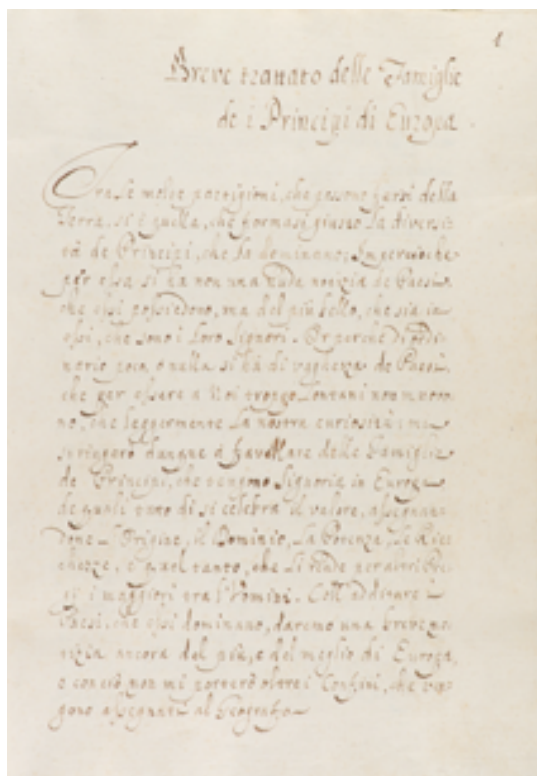 1
Breve trattato delle Famiglie
de i Principi di Europa.
Tra le molte partigioni, che possono farsi della
Terra, si è quella, che formasi giusto la diversi-
tà de Principi, che la dominano; Imperciòche
per essa si ha non una nuda notizia de Paesi
che essi possiedono, ma del più bello, che sia in
essi, che sono i Loro Signori. Or perche di ordi-
nario poca, ò nulla si hà di vaghezza de Paesi,
che per essere a Noi troppo Lontani non muovo-
no, che leggermente la nostra curiosità: mi
ristringerò dunque à trattare delle Famiglie
de Principi, che tengono Signoria in Europa
de quali tutto dì si celebra il valore, assegnan-
done L'Origine, il Dominio, La Potenza, Le Ric-
chezze, e quel tanto, che Li rende per altri
i maggiori tra l'Uomini. Coll'additare i
Paesi, che essi dominano, daremo una breve no-
tizia ancora del più, e del meglio di Europa,
e con ciò non mi porterò oltre i Confini, che ven-
gono assegnati al Geografo